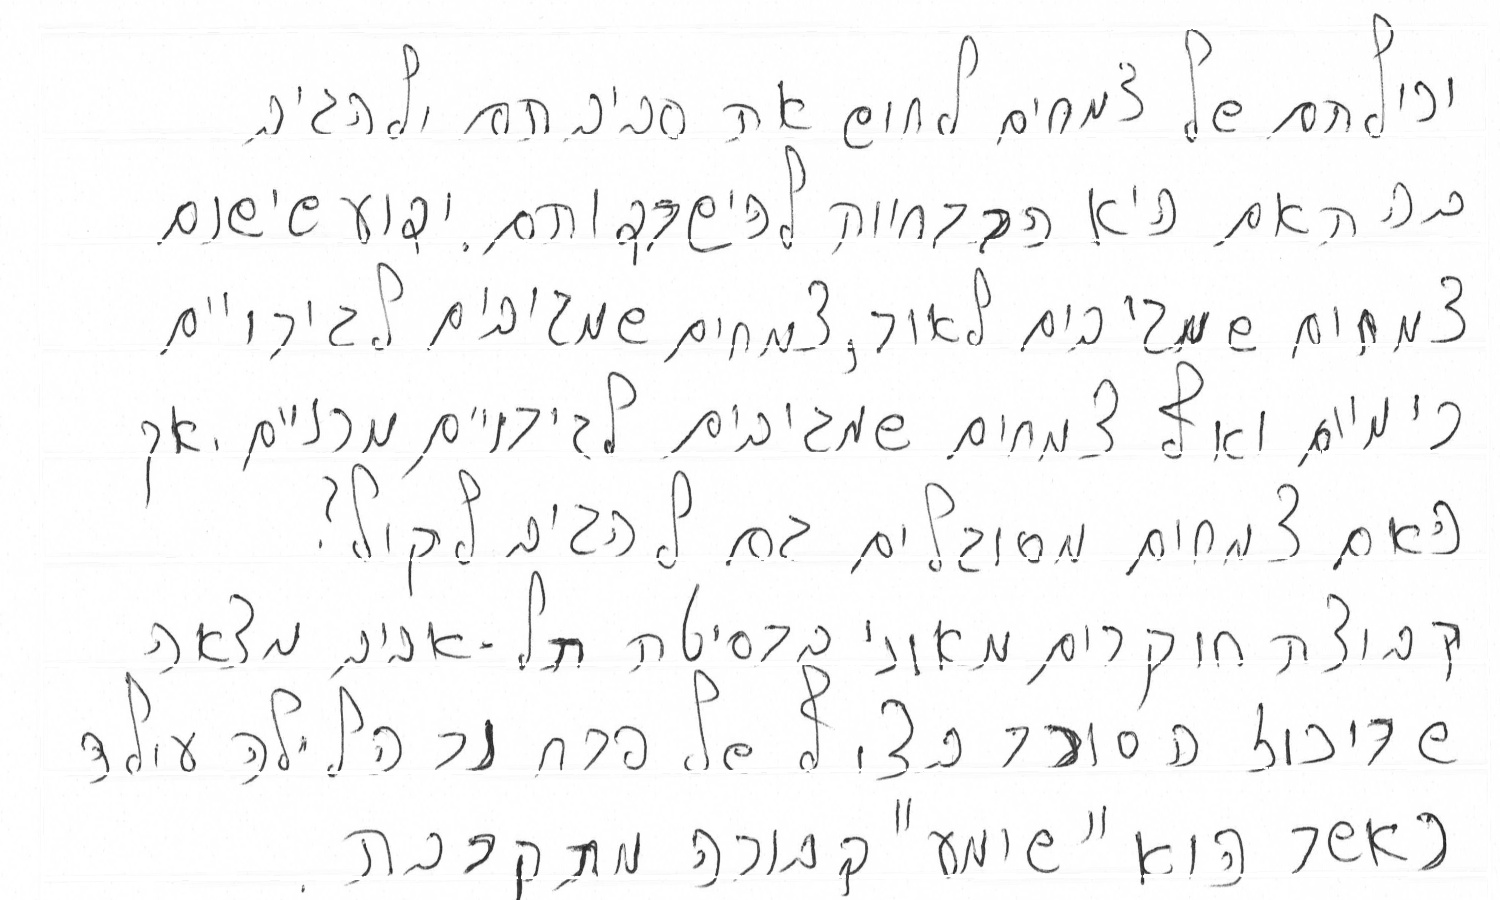 יכולתם של צמחים לחוש את סביבתם ולהגיב
בהתאם היא הכרחיות להישרדותם. ידוע שישנם
צמחים שמגיבים לאור, צמחים שמגיבים לגירויים
כימיים ואף צמחים שמגיבים לגירויים מכניים. אך
האם צמחים מסוגלים גם להגיב לקול?
קבוצת חוקרים מאוניברסיטת תל-אביב מצאה
שריכוז הסוכר בצוף של פרח נר הלילה עולה
כאשר הוא "שומע" דבורה מתקרבת.